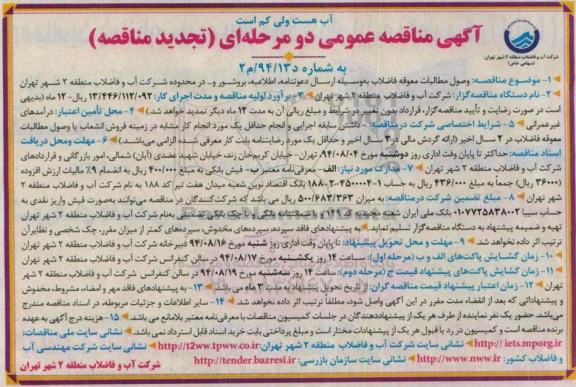 آب هست ولی کم است
آگهی مناقصه عمومی دو مرحله‌ای (تجدید مناقصه)
به شماره د۹۴/۱۳/م۲
شرکت آب و فاضلاب منطقه ۲ شهر تهران
(سهامی خاص)
۱- موضوع مناقصه: وصول مطالبات معوقه فاضلاب به‌وسیله ارسال دعوتنامه، اطلاعیه، بروشور و.. در محدوده شرکت آب و فاضلاب منطقه ۲ شهر تهران
۲- نام دستگاه مناقصه‌گزار: شرکت آب و فاضلاب منطقه ۲ شهر تهران ۳- برآورد اولیه مناقصه و مدت اجرای کار: ۱۳/۴۴۶/۱۱۲/۰۹۲ ریال- ۱۲ ماه (بدیهی
است در صورت رضایت و تأیید مناقصه‌گزار، قرارداد بدون تغییر در شرایط و مبلغ ریالی آن به مدت ۱۲ ماه دیگر تمدید خواهد شد) ۴- محل تأمین اعتبار: درآمدهای
غیرعمرانی ۵- شرایط اختصاصی شرکت در مناقصه: - داشتن سابقه اجرایی و انجام حداقل یک مورد انجام کار مشابه در زمینه فروش انشعاب یا وصول مطالبات
معوقه فاضلاب در ۳ سال اخیر (ارائه گردش مالی در ۳ سال اخیر و حداقل یک مورد رضایتنامه بابت کار معرفی شده الزامی می‌باشد.) ۶- مهلت ومحل دریافت
اسناد مناقصه: حداکثر تا پایان وقت اداری روز دوشنبه مورخ ۹۴/۰۸/۰۴ تهران- خیابان کریم‌خان زند، خیابان شهید عضدی (آبان) شمالی، امور بازرگانی و قراردادهای
شرکت آب و فاضلاب منطقه ۲ شهر تهران ۷- مدارک مورد نیاز: الف- معرفی‌نامه معتبر ب- فیش بانکی به مبلغ ۴۰۰/۰۰۰ ریال به انضمام ۹٪ مالیات ارزش افزوده
(۳۶۰۰۰ ریال) جمعاً به مبلغ ۴۳۶/۰۰۰ ریال به حساب ۱-۳۵۰۰۰۰۴-۲-۱۸۸ بانک اقتصاد نوین شعبه میدان هفت تیر کد ۱۸۸ به نام شرکت آب و فاضلاب منطقه ۲
شهر تهران ۸- مبلغ تضمین شرکت درمناقصه: به میزان ۵۰۰/۶۸۳/۳۶۳ ریال می باشد که شرکت‌کنندگان در مناقصه می‌توانند به‌صورت فیش واریز نقدی به
حساب سیبا ۰۱۰۷۷۲۵۸۳۸۰۰۲ بانک ملی ایران شعبه مجدیه کد ۱۴۱ و یا ضمانتنامه بانکی یا چک بانکی تضمینی به‌نام شرکت آب و فاضلاب منطقه ۲ شهر تهران
تهیه و ضمیمه پیشنهاد به دستگاه مناقصه‌گزار تسلیم نماید به پیشنهادهای فاقد سپرده، سپرده‌های مخدوش، سپرده‌های کمتر از میزان مقرر، چک شخصی و نظایر آن
ترتیب اثر داده نخواهد شد. ۹- مهلت و محل تحویل پیشنهاد: تا پایان وقت اداری روز شنبه مورخ ۹۴/۰۸/۱۶ دبیرخانه شرکت آب و فاضلاب منطقه ۲ شهر تهران
۱۰- زمان گشایش پاکت‌های الف و ب (مرحله اول): ساعت ۱۴ روز یکشنبه مورخ ۹۴/۰۸/۱۷ در سالن کنفرانس شرکت آب و فاضلاب منطقه ۲ شهر تهران
۱۱- زمان گشایش پاکت‌های پیشنهاد قیمت ج (مرحله دوم): ساعت ۱۴ روز سه‌شنبه مورخ ۹۴/۰۸/۱۹ در سالن کنفرانس شرکت آب و فاضلاب منطقه ۲ شهر
تهران ۱۲- زمان اعتبار پیشنهاد قیمت مناقصه گران: از تاریخ تحویل پیشنهاد به مدت ۳ ماه می باشد ۱۳- به پیشنهادهای فاقد مهر و امضاء، مشروط، مخدوش
و پیشنهاداتی که بعد از انقضاء مدت مقرر در این آگهی واصل شود، مطلقاً ترتیب اثر داده نخواهد شد. ۱۴- سایر اطلاعات و جزئیات مربوطه، در اسناد مناقصه مندرج
می‌باشد. حضور یک نفر نماینده از طرف هر یک از پیشنهاددهندگان در جلسات کمیسیون مناقصات با معرفی‌نامه معتبر بلامانع می باشد. ۱۵- هزینه درج آگهی به عهده
برنده مناقصه است و کمیسیون در رد یا قبول هر یک از پیشنهادات مختار است و مبلغ پرداختی بابت خرید اسناد قابل استرداد نمی باشد. نشانی سایت ملی مناقصات:
http:// iets.mporg.ir نشانی سایت شرکت آب و فاضلاب منطقه ۲ شهر تهران: http://t2ww.tpww.co.ir نشانی سایت شرکت مهندسی آب
و فاضلاب کشور: http://www.nww.ir نشانی سایت سازمان بازرسی: http://tender.bazresi.ir شرکت آب و فاضلاب منطقه ۲ شهر تهران